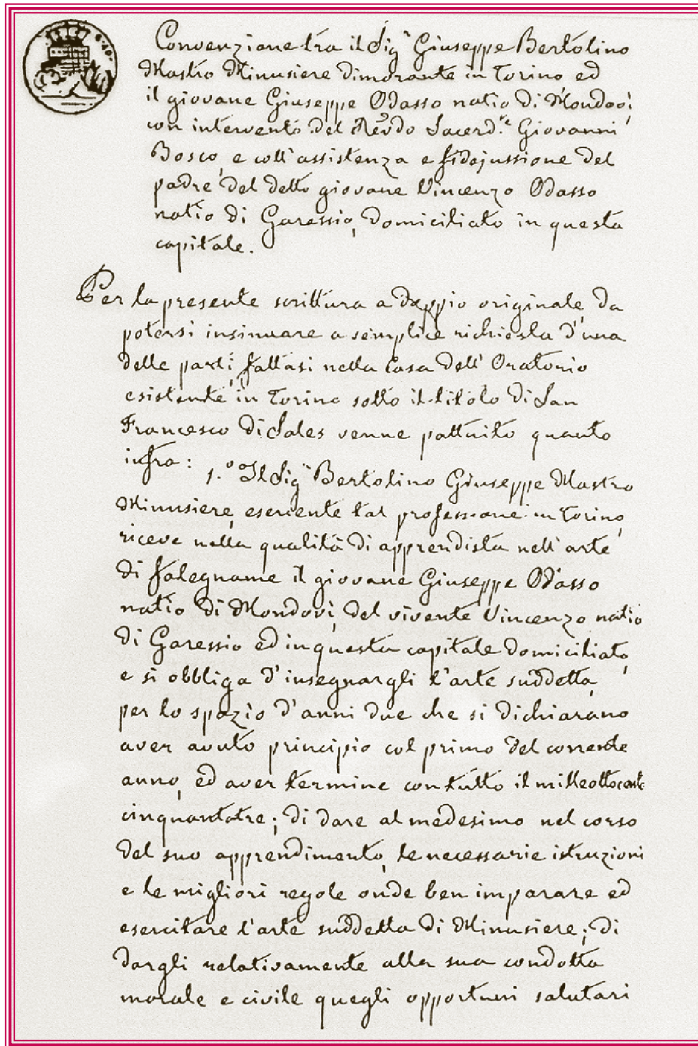 Convenzione tra il Sigr Giuseppe Bertolino
Mastro Minusiere dimorante in Torino ed
il giovane Giuseppe Odasso natio di Mondovì,
con intervento del Revdo Sacerdte Giovanni
Bosco, e coll'assistenza e fidejussione del
padre del detto giovane Vincenzo Odasso
natio di Garessio, domiciliato in questa
capitale.
Per la presente scrittura a doppio originale da
potersi insinuare a semplice richiesta d'una
delle parti, fattasi nella Casa dell'Oratorio
esistente in Torino sotto il titolo di San
Francesco di Sales venne pattuito quanto
infra: 1.o Il Sigr Bertolino Giuseppe Mastro
Minusiere, esercente tal professione in Torino,
riceve nella qualità di apprendista nell'arte
di falegname il giovane Giuseppe Odasso
natio di Mondovì, del vivente Vincenzo natio
di Garessio ed in questa capitale domiciliato,
e si obbliga d'insegnargli l'arte suddetta,
per lo spazio d'anni due che si dichiarano
aver avuto principio col primo del corrente
anno, ed aver termine con tutto il milleottocento
cinquantatre; di dare al medesimo nel corso
del suo apprendimento, le necessarie istruzioni
e le migliori regole onde ben imparare ed
esercitare l'arte suddetta di Minusiere; di
dargli relativamente alla sua condotta
morale e civile quegli opportuni salutari